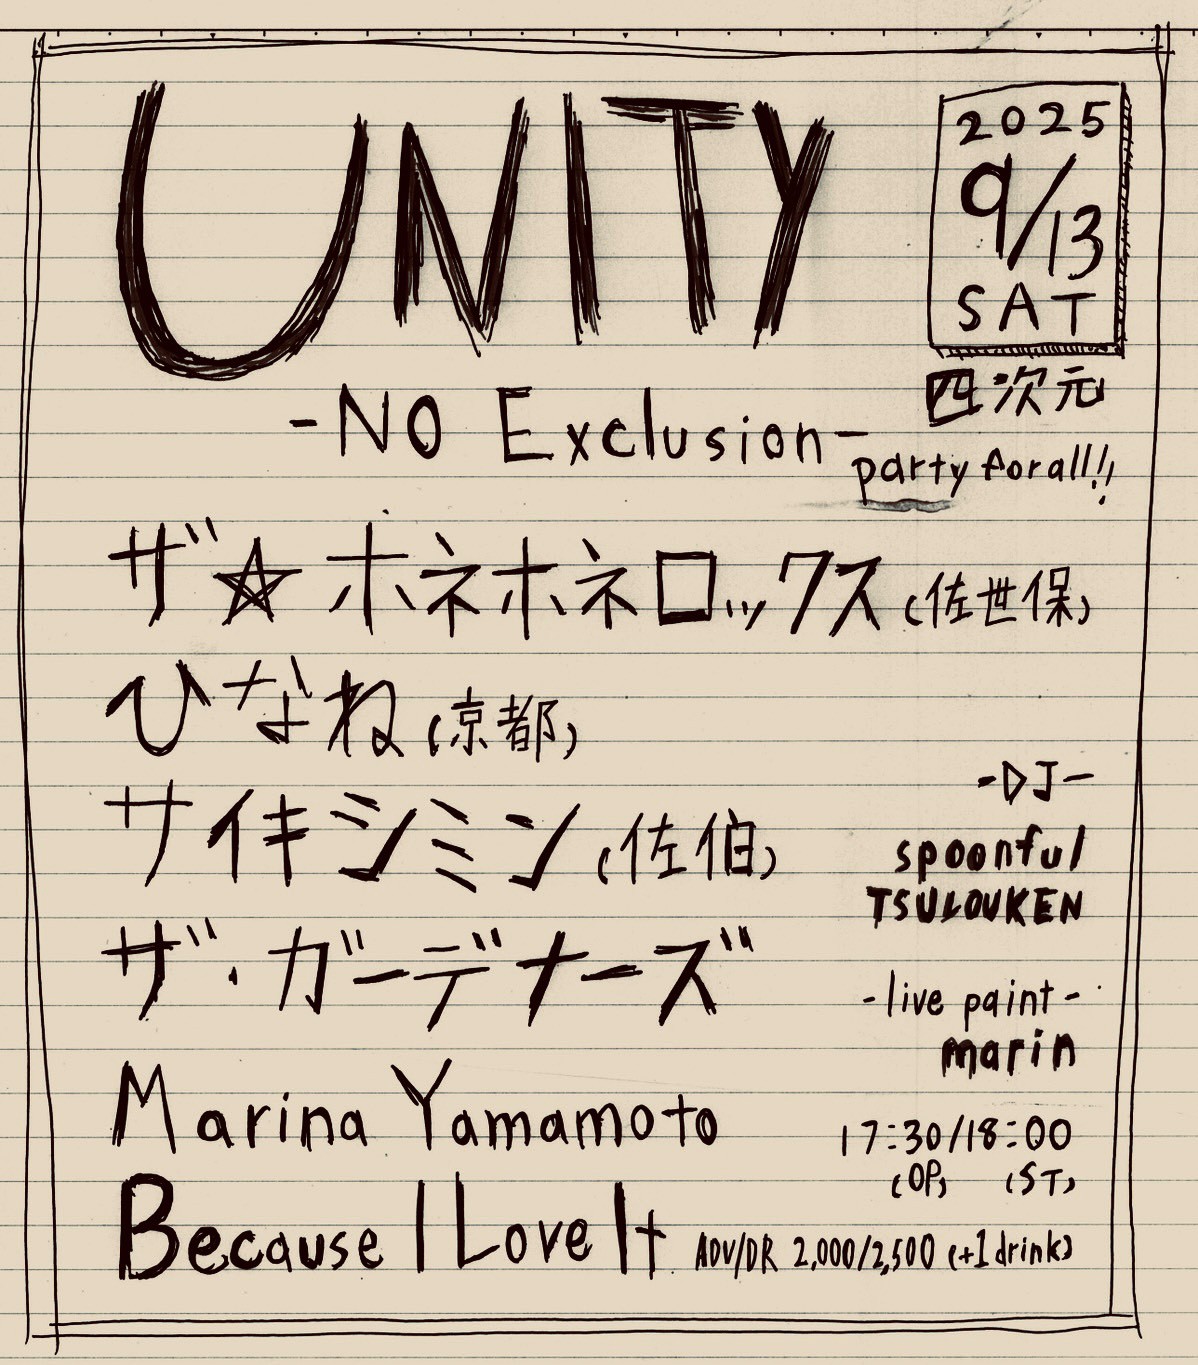 UNITY
2025
9/13
SAT
四次元
-NO Exclusion-
party for all!!
ザ☆ホネホネロックス(佐世保)
ひなね(京都)
サイキシミン(佐伯)
ザ・ガーデナーズ
Marina Yamamoto
Because I Love It
-DJ-
spoonful
TSULOUKEN
-live paint-
marin
17:30/18:00
(OP) (ST)
ADV/DR 2,000/2,500 (+1drink)